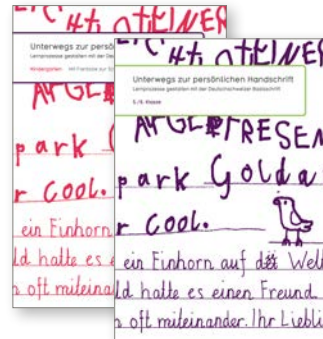 Unterwegs zur persö
Lernprozesse gestalten mit der Deu
Kindergarten
park
r cool.
ein Einhorn
ld hatte es e
oft miteinander
Unterwegs zur persönlichen Handschrift
Lernprozesse gestalten mit der Deutschschweizer Basisschrift
5./6. Klasse
park Golda
r cool.
ein Einhorn auf Welt
ld hatte es einen Freund
oft miteinander. Ihr Liebli